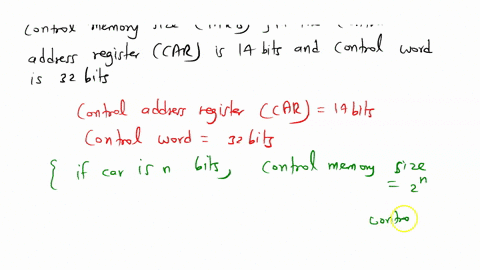 control memory size
address register (CAR) is 14 bits and control word
is 32 bits
control address register (CAR) = 14 bits
control word = 32 bits
{ if car is n bits, control memory size
= 2^n
contro